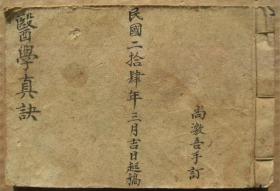 醫學真訣
民國二拾肆年三月吉日起稿
尚激吾手訂